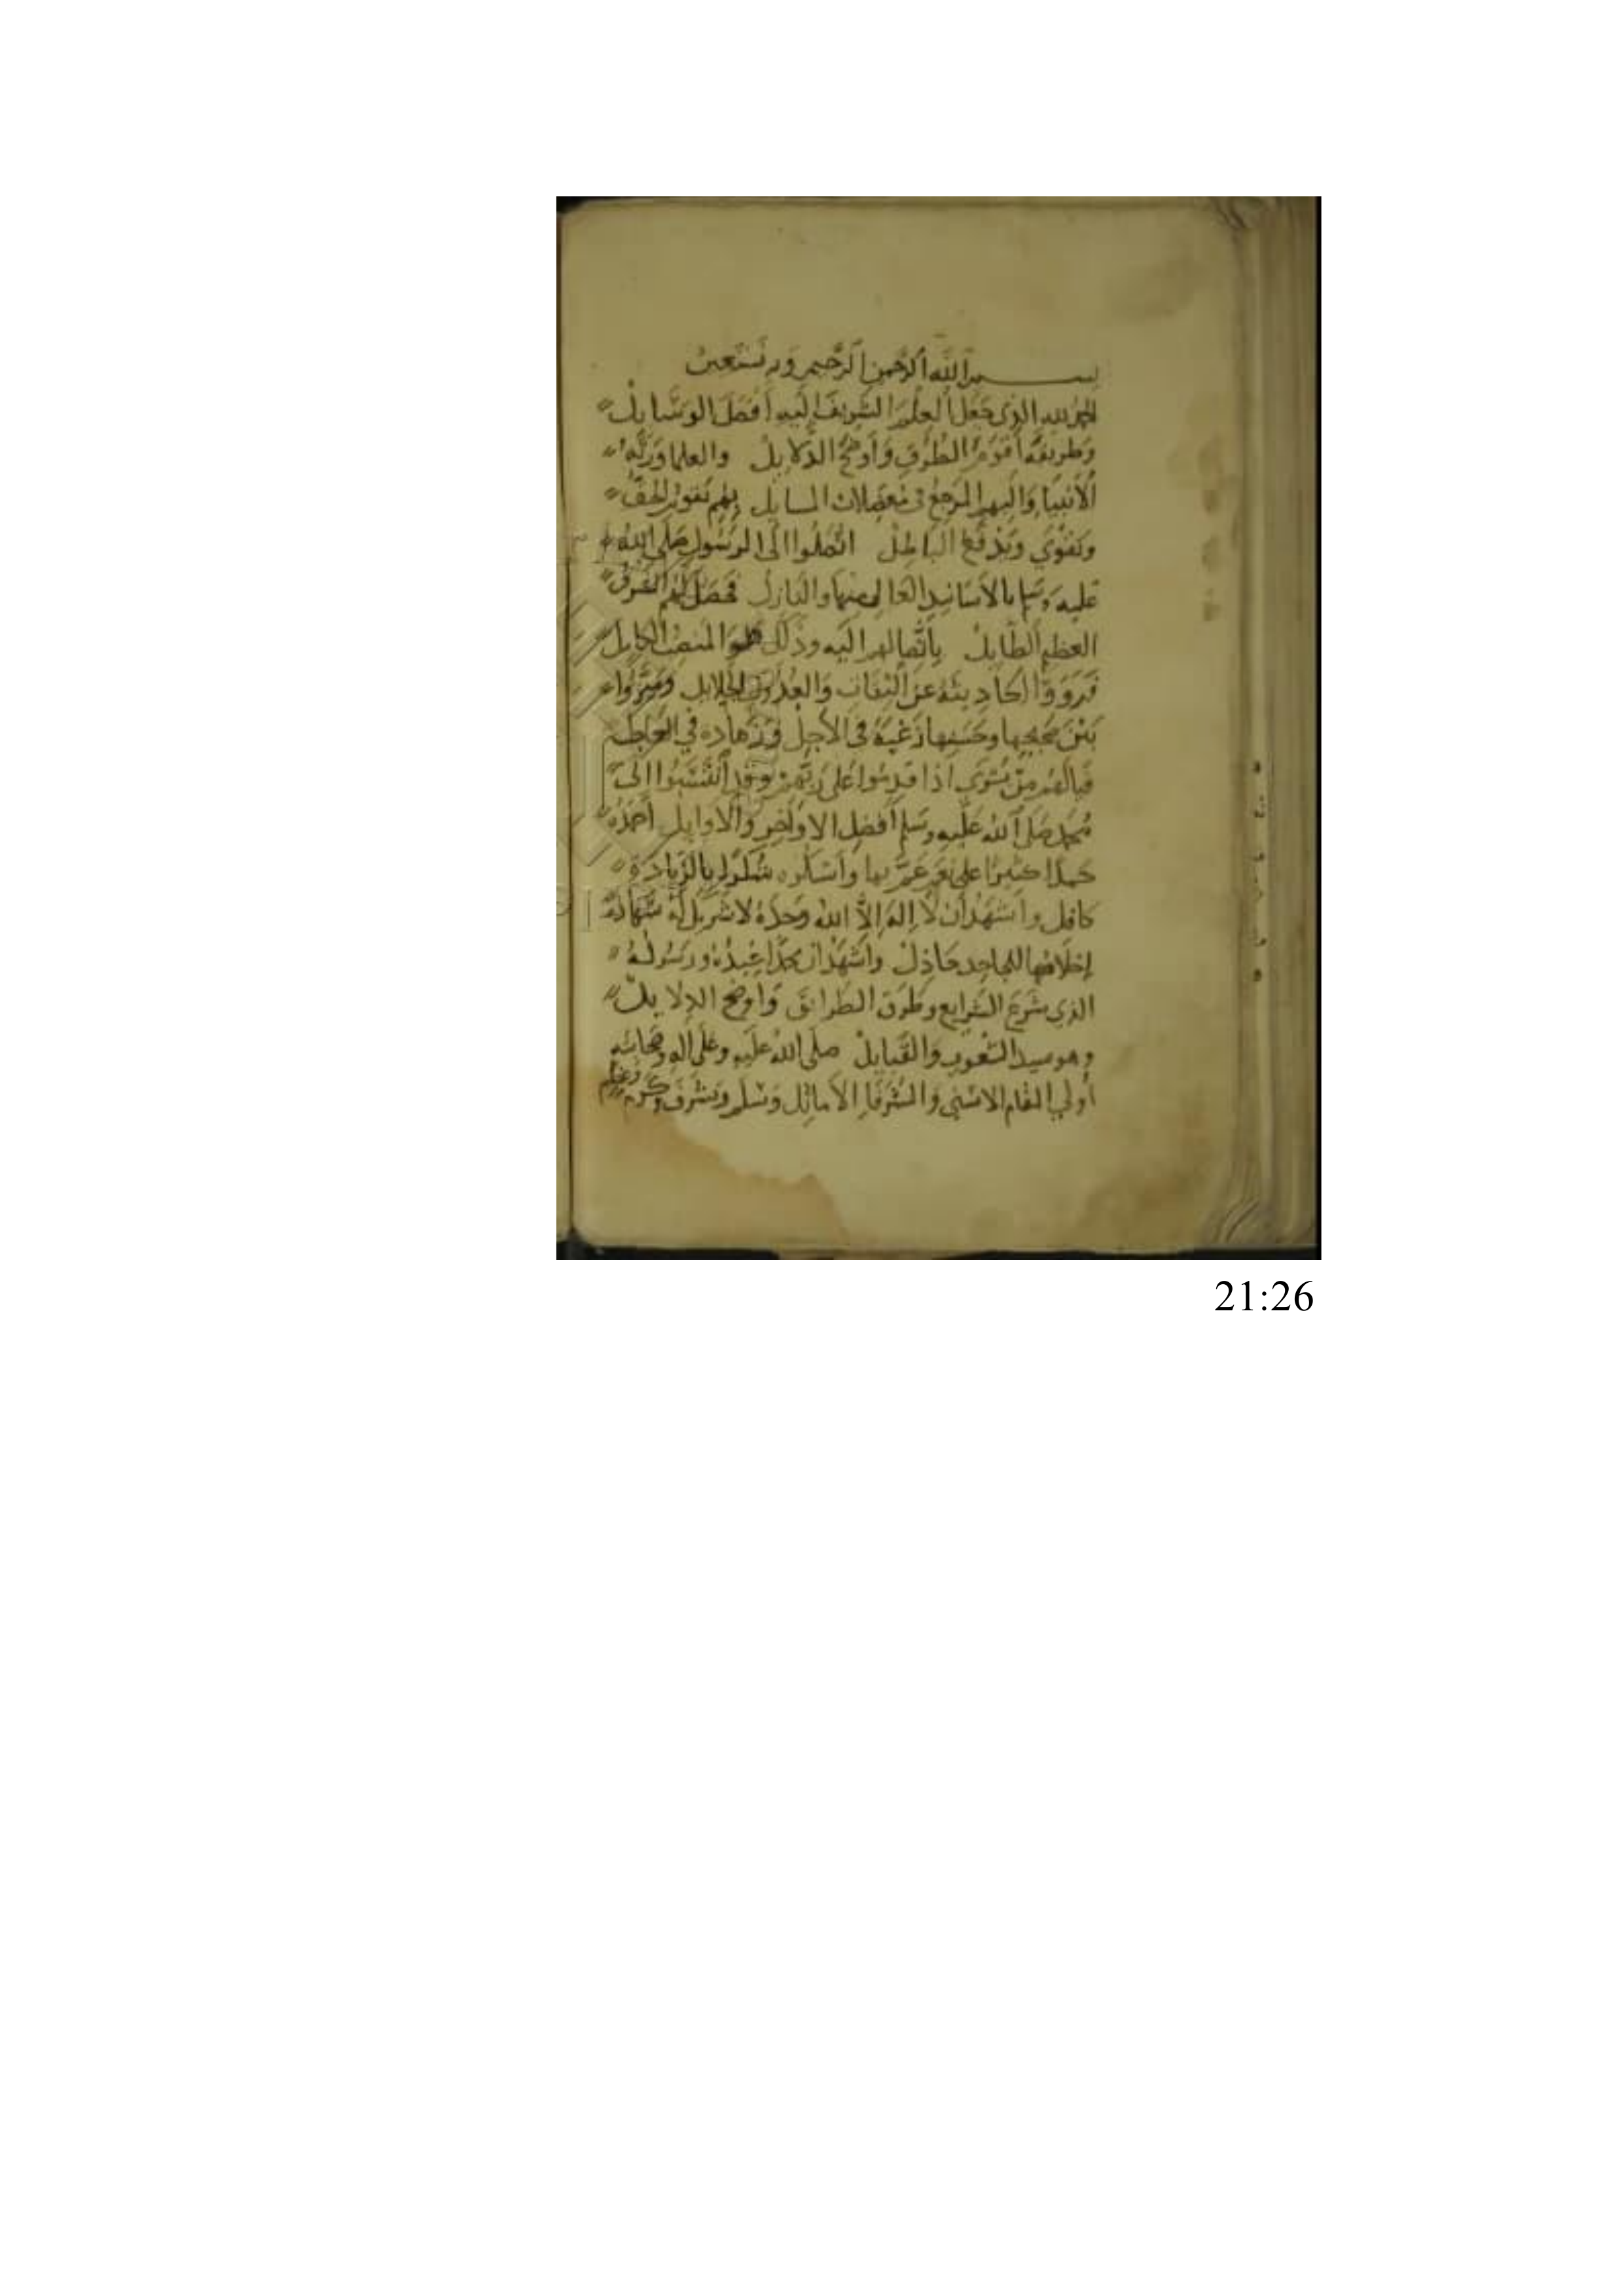 بسم الله الرحمن الرحيم وبه نستعين
الحمد لله الذي جَعَل العِلمَ الشريفَ إليه أفضَلَ الوسَايلْ
وَطريقَهُ أقوَمَ الطُرُقِ وَأوضحَ الدّلايلْ والعلما وَرَثَه
الأنبيَا وَاليهم المَرجِعُ في مُعضِلات المسايل بِهِم الحقُّ
ويَقْوَي ويَدْفَعُ الباطِلْ اتّصَلُوا الَى الرسُولِ صَلى الله
عليه وسَلم بالأسَانيدِ العَالي منها والنازلْ فحَصَلَ لهم الشرفُ
العظيم الطّايلْ باتّصالهم اليَه وذلك هُوَ المَنصبُ الكامل
فَرَوَوْا احَاديثَهُ عن الثِقات وَالعُدُولِ وَمَيَّزُوا
بَيْنَ صحيحِها وحَسَنِها رَغبَةً في الآجِلْ وَزَهادة في العَاجل
اذا قدِمُوا على رَبّهِم وَقد انتَسَبُوا الَى
مُحمد صَلى الله عليه وسَلم أفضل الاواخر والاوايل أحمَدُهُ
حَمدًا كثيرًا على نِعَمٍ عَمَّ بها وأشكره شكرًا بالزيادة
كافل وأشهَدُ أن لا إله إلاّ الله وَحدَهُ لا شريكَ لَهُ شهادَةً
إخلاصُها للجاحد خَاذِلْ وأشهَدُ ان محمدًا عَبدُهُ ورَسُولُهُ
الذي شَرَعَ الشرايع وطَرَق الطرائق وَاوضح الدلايلْ
وهو سيد الشعوبِ وَالقَبايلْ صلى الله عليهِ وعَلَى آلهِ وصَحابته
أولي المقام الاسنَي وَالشُرَفَا الأماثل وَسَلم وَشرَّف وكَرَّم وَعَظَّم
21:26